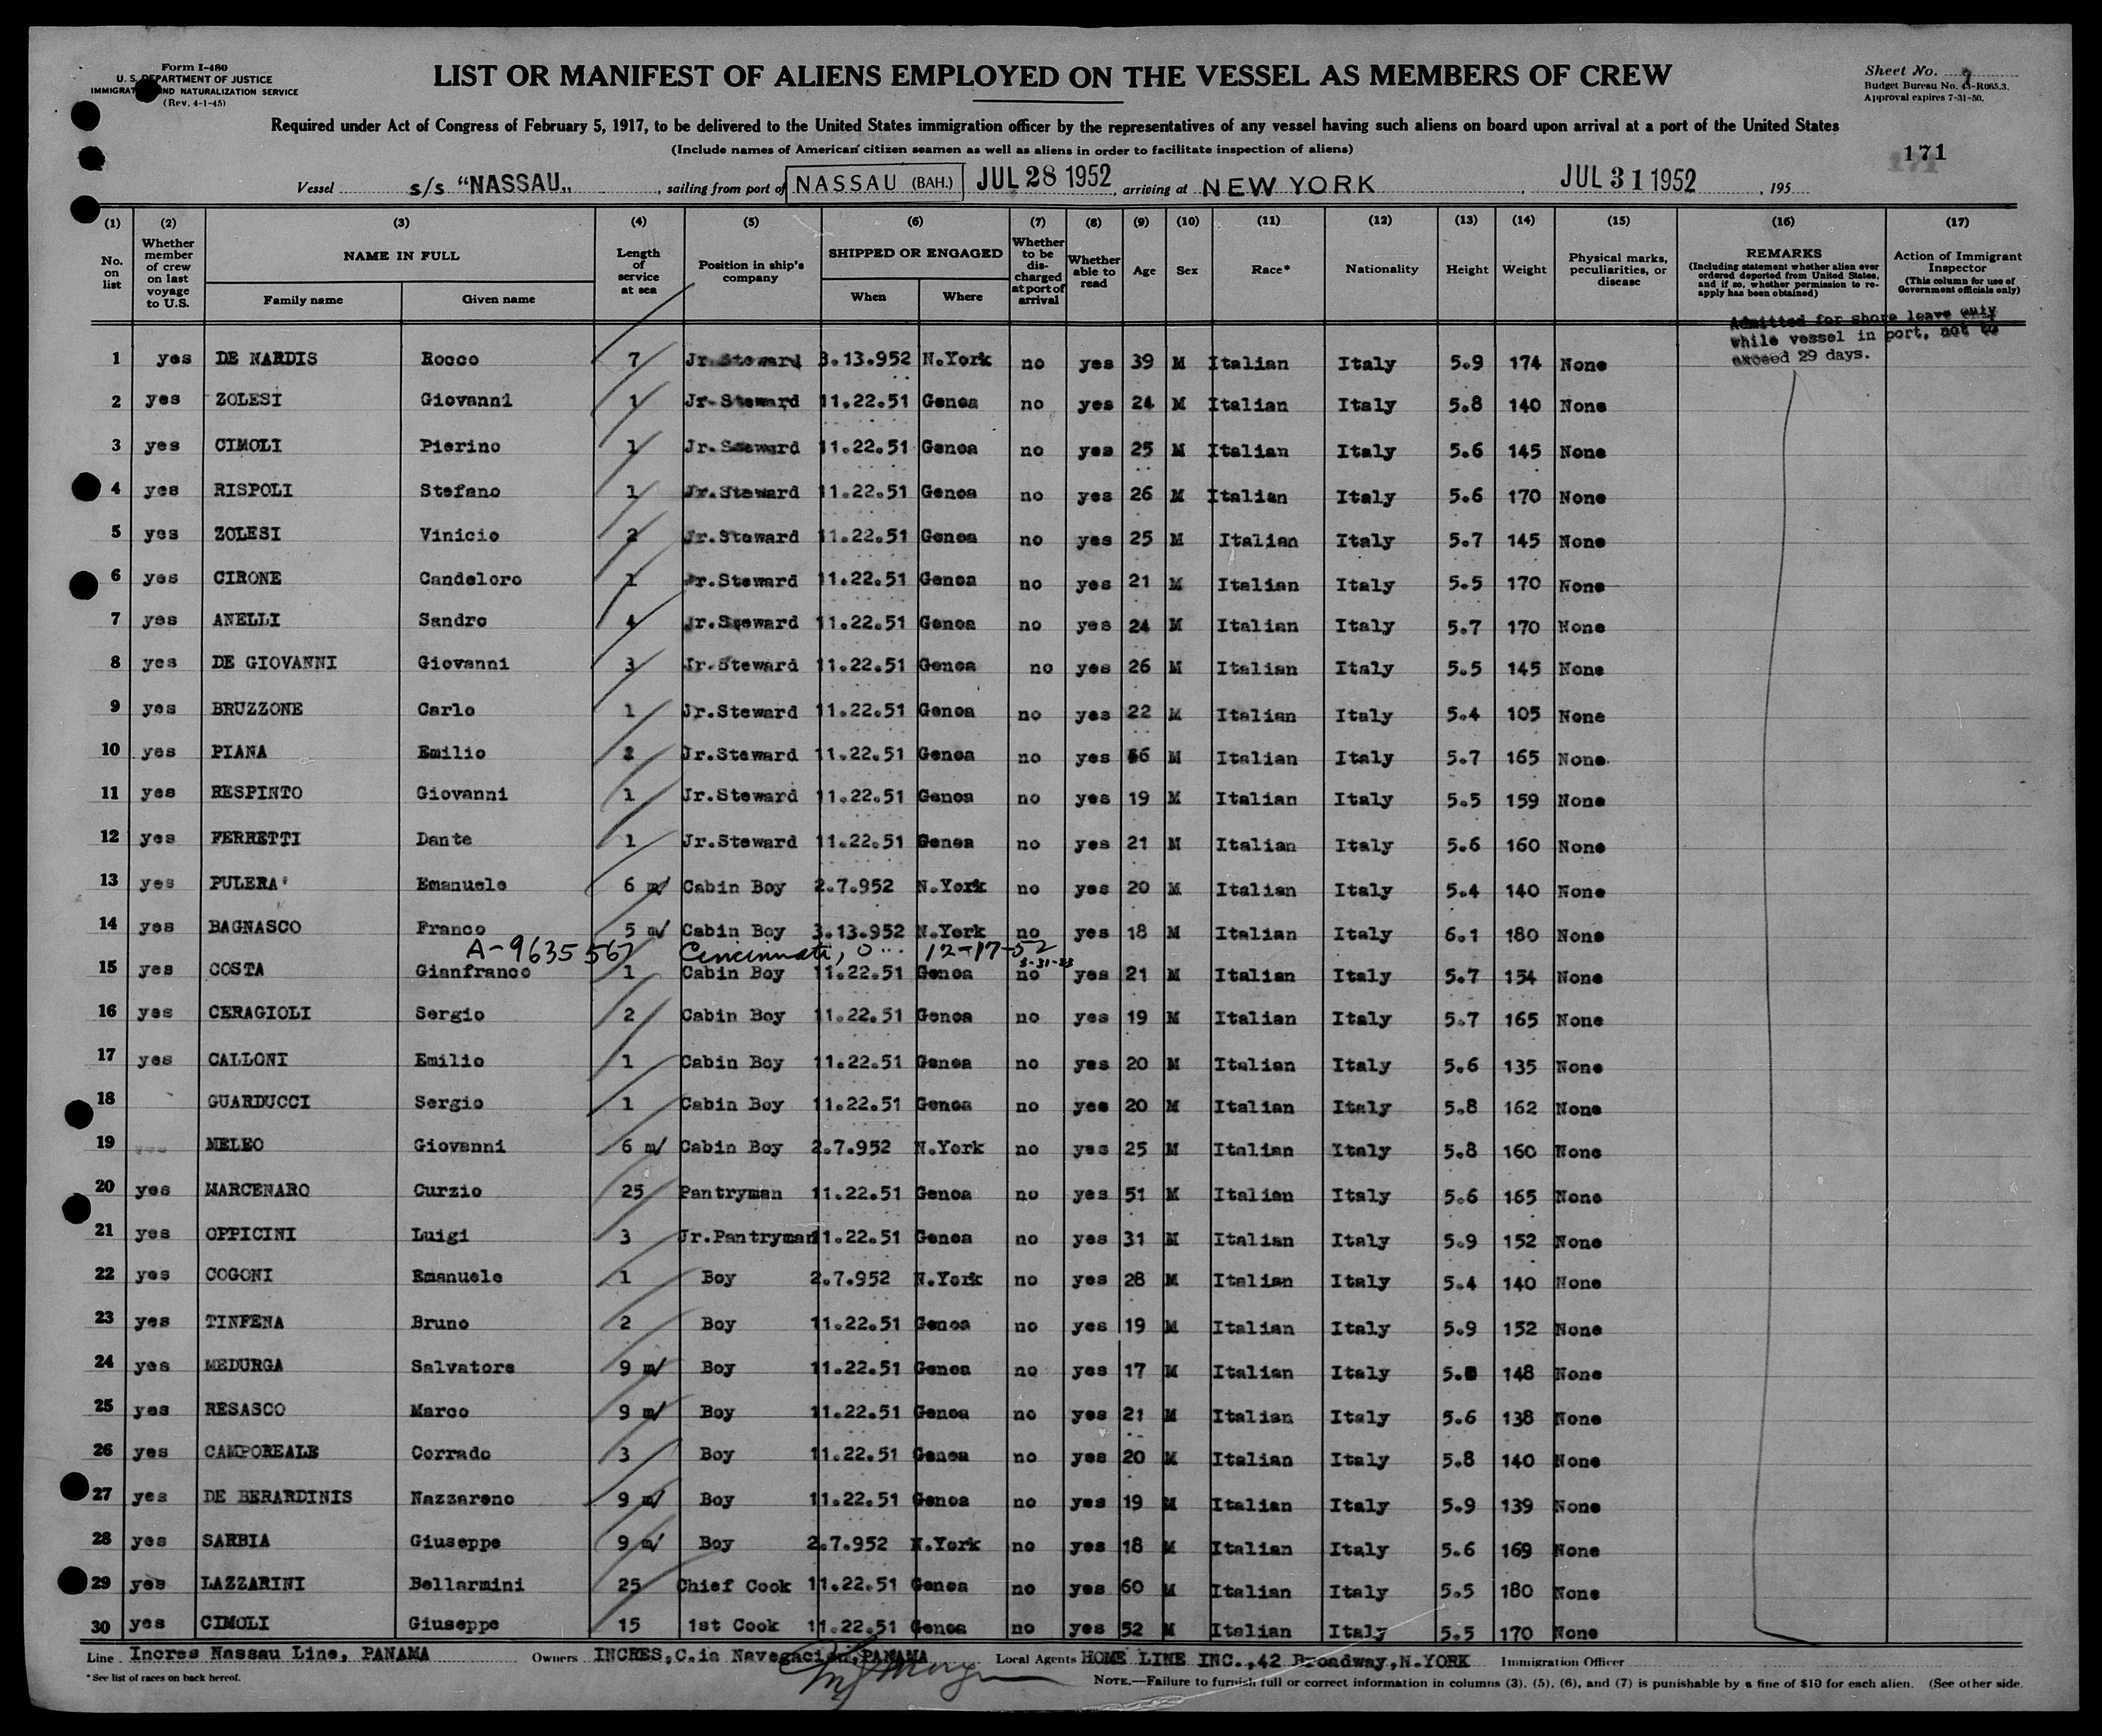 Form I-480
U. S. DEPARTMENT OF JUSTICE
IMMIGRATION AND NATURALIZATION SERVICE
(Rev. 4-1-45)
LIST OR MANIFEST OF ALIENS EMPLOYED ON THE VESSEL AS MEMBERS OF CREW
Sheet No. 7
Budget Bureau No. 43-R065.3.
Approval expires 7-31-50.
Required under Act of Congress of February 5, 1917, to be delivered to the United States immigration officer by the representatives of any vessel having such aliens on board upon arrival at a port of the United States
(Include names of American citizen seamen as well as aliens in order to facilitate inspection of aliens)
171
Vessel s/s "NASSAU„ , sailing from port of NASSAU (BAH.) JUL 28 1952, arriving at NEW YORK , JUL 31 1952 , 195
(1) (2) (3) (4) (5) (6) (7) (8) (9) (10) (11) (12) (13) (14) (15) (16) (17)
No. on list
Whether member of crew on last voyage to U.S.
NAME IN FULL
Family name Given name
Length of service at sea
Position in ship's company
SHIPPED OR ENGAGED
When Where
Whether to be discharged at port of arrival
Whether able to read
Age
Sex
Race*
Nationality
Height
Weight
Physical marks, peculiarities, or disease
REMARKS
(Including statement whether alien ever ordered deported from United States, and if so, whether permission to reapply has been obtained)
Action of Immigrant Inspector
(This column for use of Government officials only)
Admitted for shore leave only
while vessel in port, not to
exceed 29 days.
1 yes DE NARDIS Rocco 7 Jr Steward 3.13.952 N.York no yes 39 M Italian Italy 5.9 174 None
2 yes ZOLESI Giovanni 1 Jr-Steward 11.22.51 Genoa no yes 24 M Italian Italy 5.8 140 None
3 yes CIMOLI Pierino 1 Jr.Steward 11.22.51 Genoa no yes 25 M Italian Italy 5.6 145 None
4 yes RISPOLI Stefano 1 Jr.Steward 11.22.51 Genoa no yes 26 M Italian Italy 5.6 170 None
5 yes ZOLESI Vinicio 2 Jr.Steward 11.22.51 Genoa no yes 25 M Italian Italy 5.7 145 None
6 yes CIRONE Candeloro 1 Jr.Steward 11.22.51 Genoa no yes 21 M Italian Italy 5.5 170 None
7 yes ANELLI Sandro 4 Jr.Steward 11.22.51 Genoa no yes 24 M Italian Italy 5.7 170 None
8 yes DE GIOVANNI Giovanni 3 Jr.Steward 11.22.51 Genoa no yes 26 M Italian Italy 5.5 145 None
9 yes BRUZZONE Carlo 1 Jr.Steward 11.22.51 Genoa no yes 22 M Italian Italy 5.4 105 None
10 yes PIANA Emilio Jr.Steward 11.22.51 Genoa no yes M Italian Italy 5.7 165 None
11 yes RESPINTO Giovanni 1 Jr.Steward 11.22.51 Genoa no yes 19 M Italian Italy 5.5 159 None
12 yes FERRETTI Dante 1 Jr.Steward 11.22.51 Genoa no yes 21 M Italian Italy 5.6 160 None
13 yes PULERA' Emanuele 6 m/ Cabin Boy 2.7.952 N.York no yes 20 M Italian Italy 5.4 140 None
14 yes BAGNASCO Franco 5 m/ Cabin Boy 3.13.952 N.York no yes 18 M Italian Italy 6.1 180 None
A-9635567 Cincinnati, O 12-17-52
3-31-53
15 yes COSTA Gianfranco 1 Cabin Boy 11.22.51 Genoa no yes 21 M Italian Italy 5.7 154 None
16 yes CERAGIOLI Sergio 2 Cabin Boy 11.22.51 Genoa no yes 19 M Italian Italy 5.7 165 None
17 yes CALLONI Emilio 1 Cabin Boy 11.22.51 Genoa no yes 20 M Italian Italy 5.6 135 None
18 GUARDUCCI Sergio 1 Cabin Boy 11.22.51 Genoa no yes 20 M Italian Italy 5.8 162 None
19 yes MELEO Giovanni 6 m/ Cabin Boy 2.7.952 N.York no yes 25 M Italian Italy 5.8 160 None
20 yes MARCENARO Curzio 25 Pantryman 11.22.51 Genoa no yes 51 M Italian Italy 5.6 165 None
21 yes OPPICINI Luigi 3 Jr.Pantryman 11.22.51 Genoa no yes 31 M Italian Italy 5.9 152 None
22 yes COGONI Emanuele 1 Boy 2.7.952 N.York no yes 28 M Italian Italy 5.4 140 None
23 yes TINFENA Bruno 2 Boy 11.22.51 Genoa no yes 19 M Italian Italy 5.9 152 None
24 yes MEDURGA Salvatore 9 m/ Boy 11.22.51 Genoa no yes 17 M Italian Italy 148 None
25 yes RESASCO Marco 9 m/ Boy 11.22.51 Genoa no yes 21 M Italian Italy 5.6 138 None
26 yes CAMPOREALE Corrado 3 Boy 11.22.51 Genoa no yes 20 M Italian Italy 5.8 140 None
27 yes DE BERARDINIS Nazzareno 9 m/ Boy 11.22.51 Genoa no yes 19 M Italian Italy 5.9 139 None
28 yes SARBIA Giuseppe 9 m/ Boy 2.7.952 N.York no yes 18 M Italian Italy 5.6 169 None
29 yes LAZZARINI Bellarmini 25 Chief Cook 11.22.51 Genoa no yes 60 M Italian Italy 5.5 180 None
30 yes CIMOLI Giuseppe 15 1st Cook 11.22.51 Genoa no yes 52 M Italian Italy 5.5 170 None
Line Incres Nassau Line, PANAMA Owners INCRES,C.ia Navegacion,PANAMA Local Agents HOME LINE INC.,42 Broadway,N.YORK Immigration Officer
*See list of races on back hereof.
NOTE.—Failure to furnish full or correct information in columns (3), (5), (6), and (7) is punishable by a fine of $10 for each alien. (See other side.